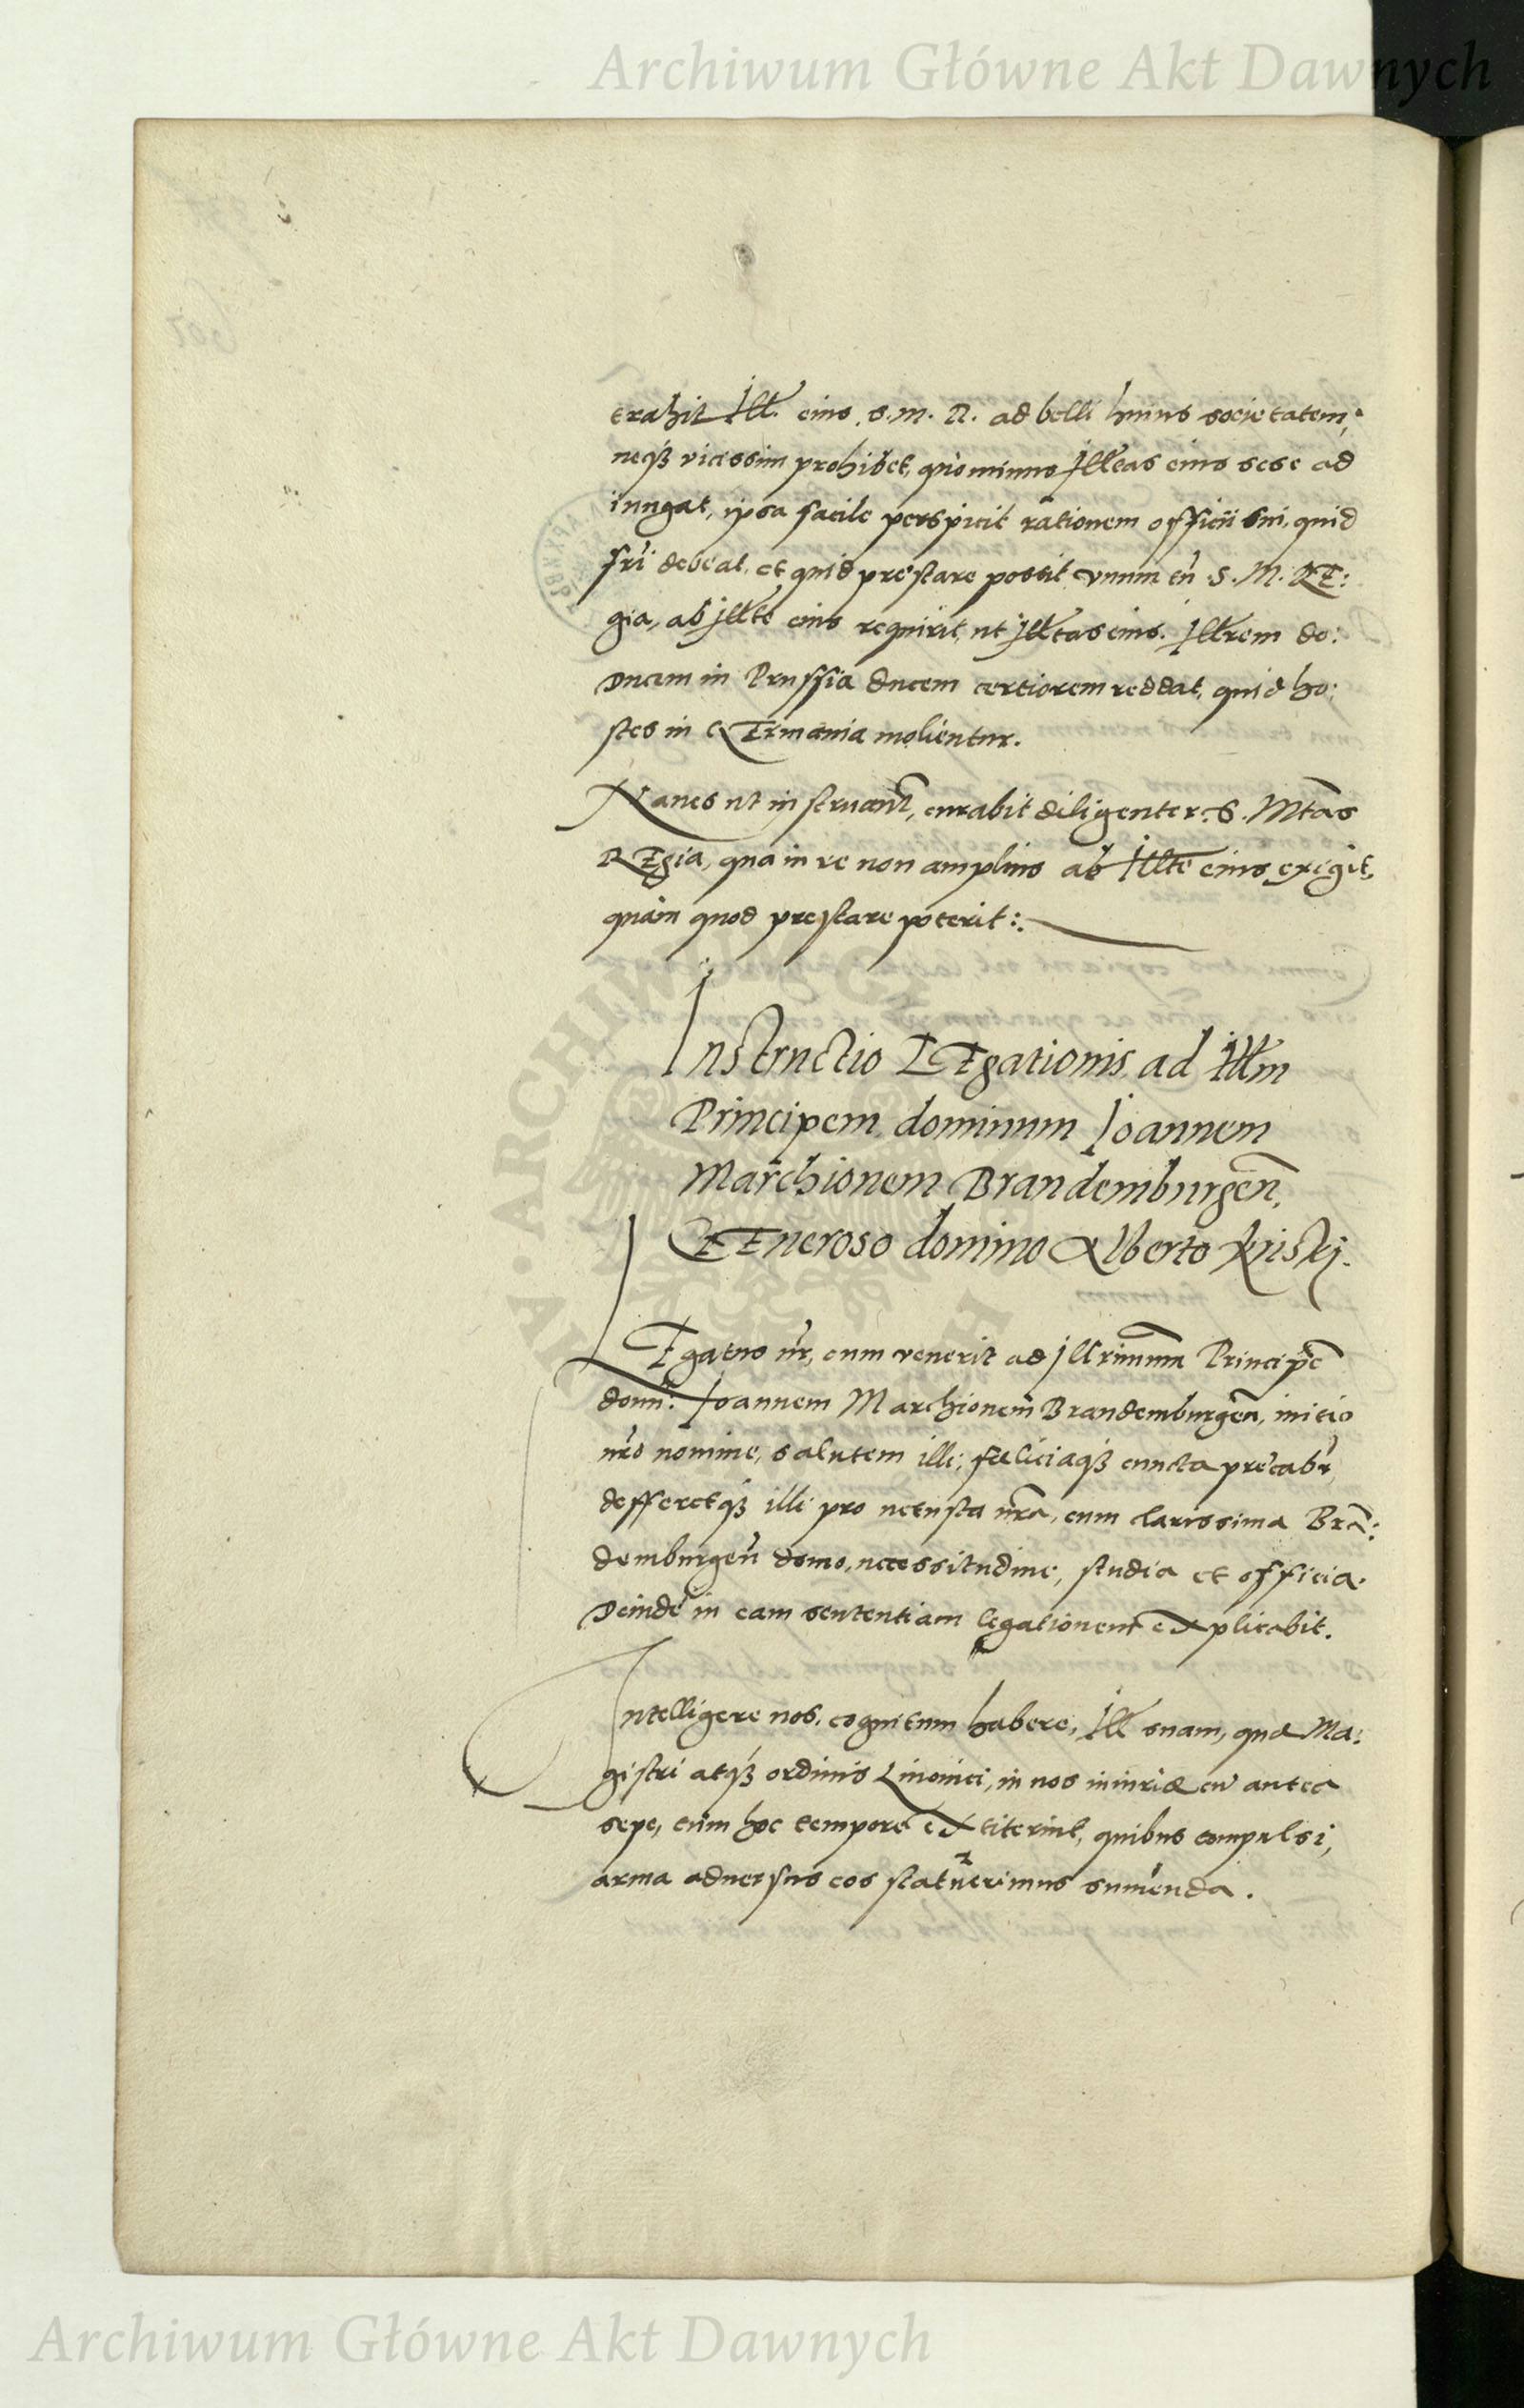 Archiwum Główne Akt Dawnych
trahit Ill. eius. S. M. R. ad belli huius societatem,
neq3 vicissim prohibet, quominus Illtas eius sese ad
iungat, ipsa facile perspicit rationem officii sui, quid
debeat, et quid prestare possit vnum tn S. M. RE:
gia, ab Illte eius requirit, ut Illtas eius. Illrem do:
Ducem in Prussia ducem certiorem reddat, quid ho:
stes in GErmania molientur.
Naues ut instruant, curabit diligenter S. Mtas
REgia, qua in re non amplius ab Illte eius exigit,
quam quod prestare poterit:.
Instructio LEgationis ad Illm
Principem dominum Joannem
Marchionem Brandemburgen,
GEneroso domino Alberto
LEgatus nr, cum venerit ad Illrimum Principe
domn: Joannem Marchionem Brandemburgen, initio
nro nomine, salutem illi, fæliciaq3 cuncta precabr,
defferetq3 illi pro uetusta nra, cum clarissima Bra:
demburgen domo, necessitudine, studia et officia.
Deinde in eam sententiam legationem explicabit.
Intelligere nos, cognitum habere, Ill suam, quæ Ma:
gistri atq3 ordinis Liuonici, in nos iniuriæ cu antea
sepe, tum hoc tempore extiterint, quibus compulsi,
arma aduersus eos statuerimus sumenda.
Archiwum Główne Akt Dawnych